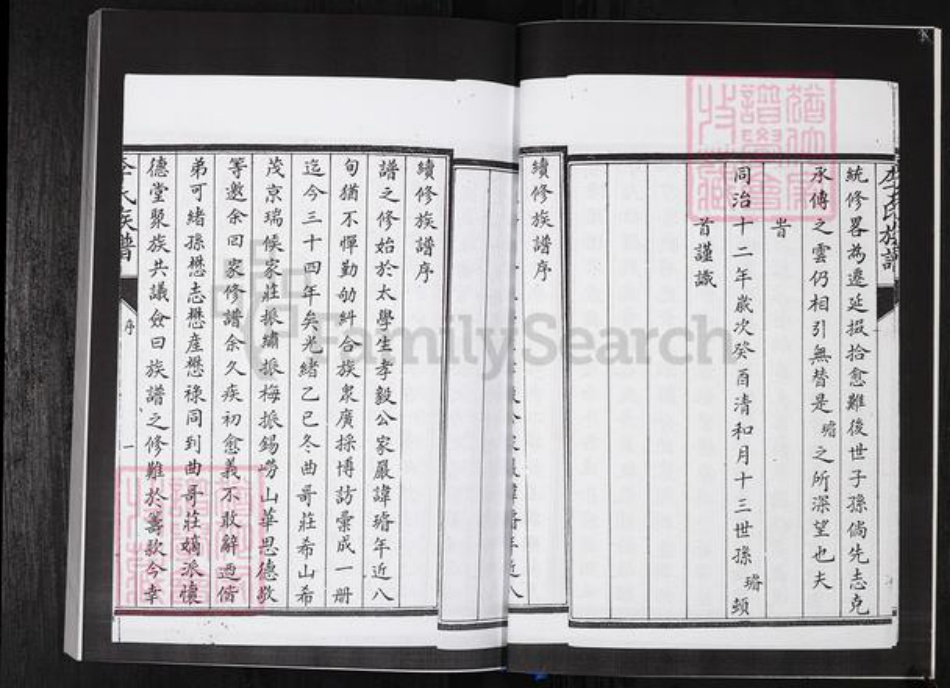 統修畧為遷延掇拾愈難後世子孫倘先志克
承傳之雲仍相引無替是瑃之所深望也夫
時
同治十二年歲次癸酉清和月十三世孫瑃頓
首謹識
續修族譜序
續修族譜序
譜之修始於太學生孝毅公家嚴諱瑃年近八
旬猶不憚勤劬糾合族衆廣採博訪彙成一册
迄今三十四年矣光緒乙巳冬曲哥莊希山希
茂京瑞候家莊振繡振梅振錫嶗山華思德敬
等邀余曰家修譜余久疾初愈義不敢辭迺偕
弟可緒孫懋志懋産懋祿同到曲哥莊嫡派懷
德堂聚族共議僉曰族譜之修難於籌欵今幸
氏族譜
序
一
氏族譜
FamilySearch